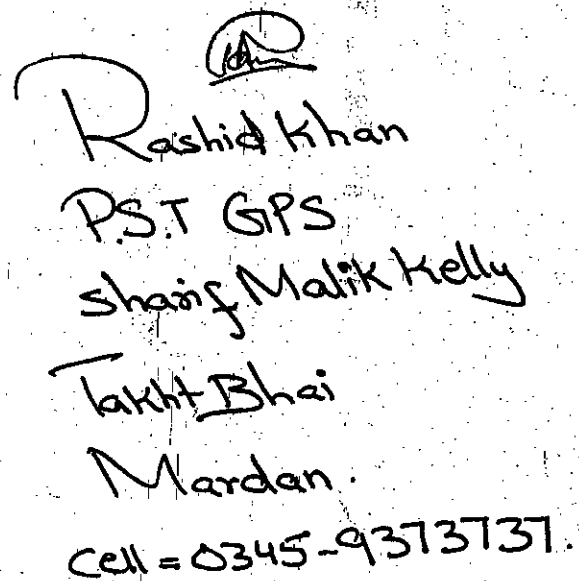 Rashid Khan
P.S.T GPS
Sharif Malik Kelly
Takht Bhai
Mardan.
Cell = 0345-9373737.